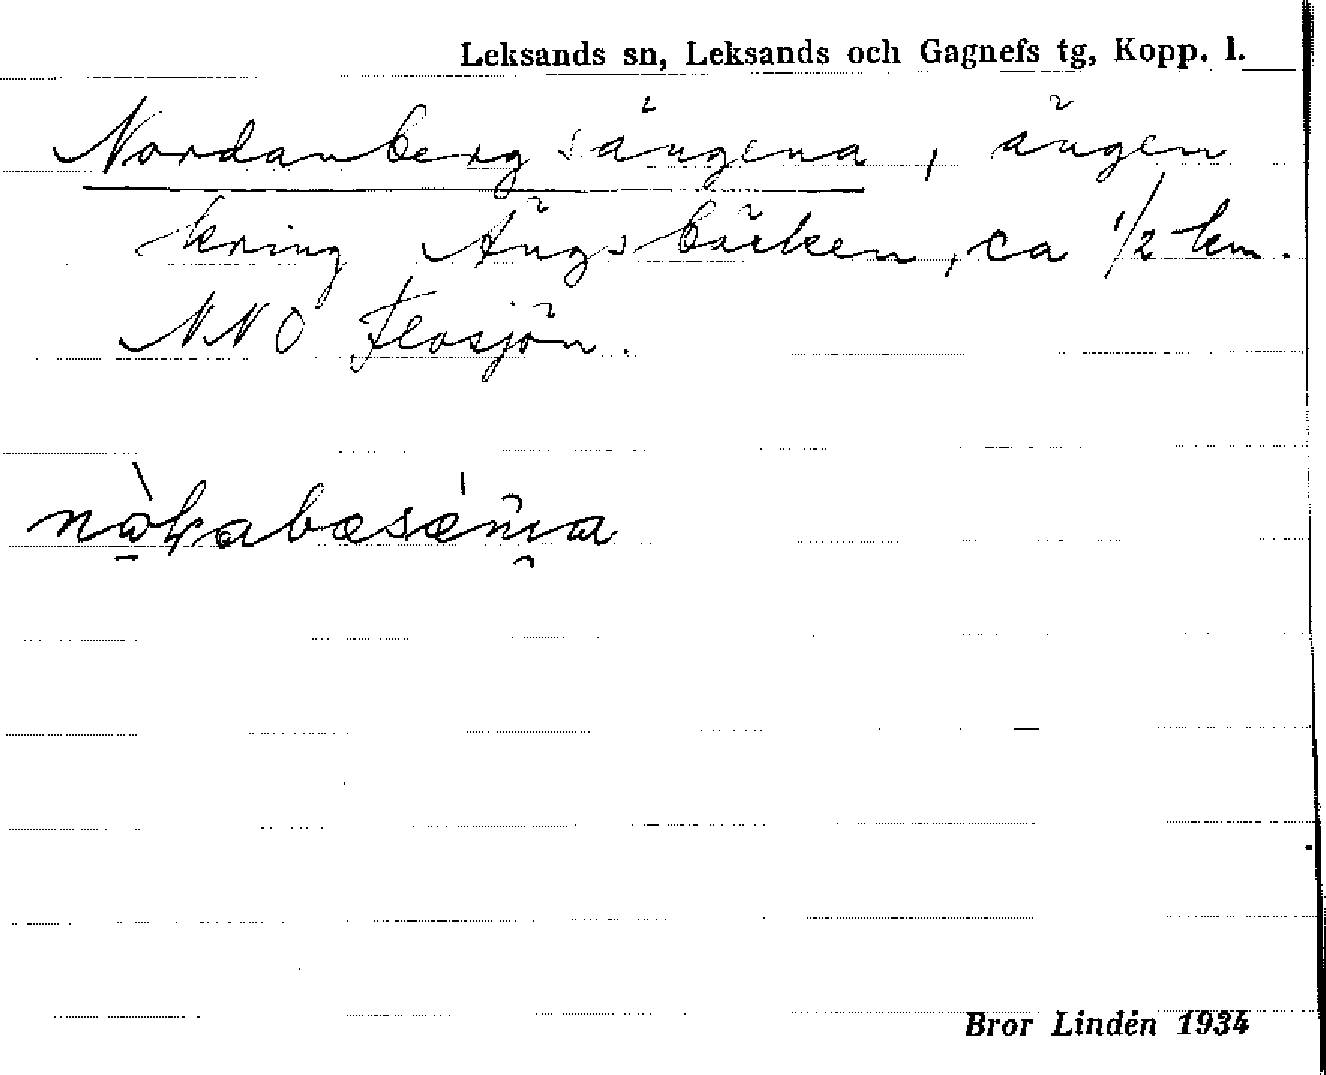 Leksands sn, Leksands och Gagnefs tg, Kopp. l.
Nordanbergsängena, ängen
kring Ängsbäcken, ca 1/2 km.
NNO Flosjön.
Bror Lindén 1934